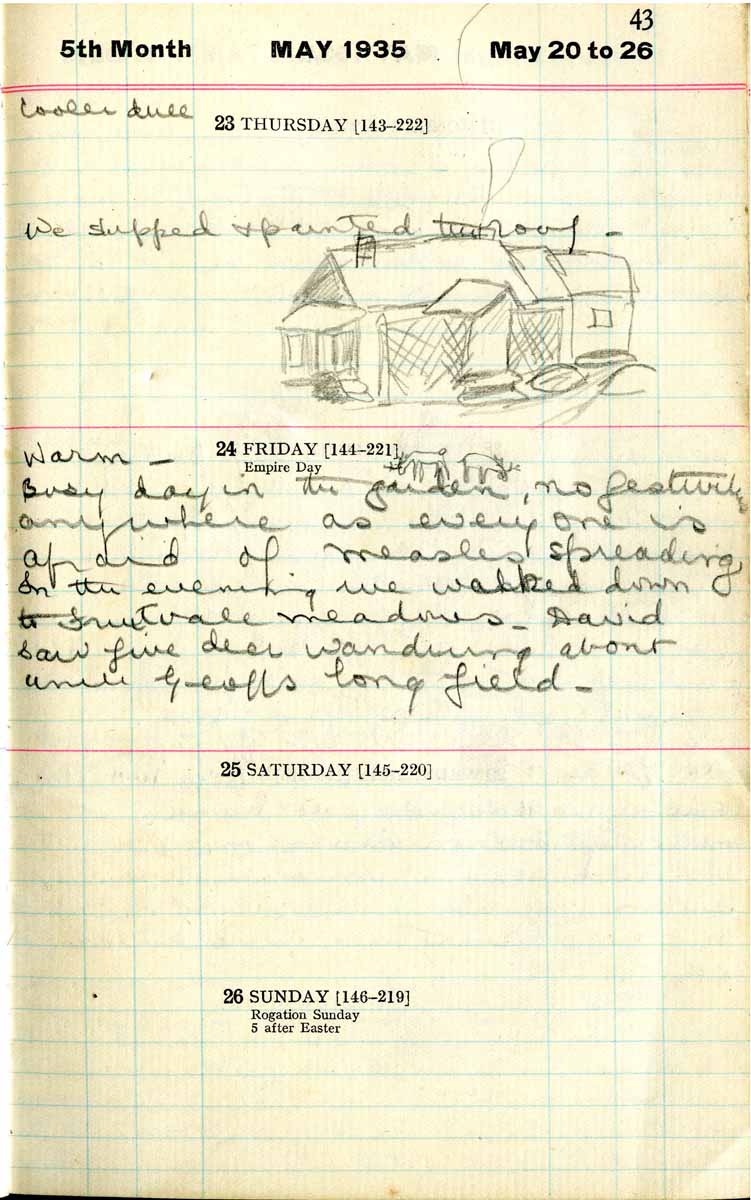 43
5th Month MAY 1935 May 20 to 26
Cooler dull
23 THURSDAY [143–222]
We supped & painted the roof –
24 FRIDAY [144–221]
Empire Day
Warm –
Busy day in the garden, no festivity
anywhere as every one is
afraid of measles spreading,
In the evening we walked down
to Fruitvale meadows – David
saw five deer wandering about
uncle Geoffs long field –
25 SATURDAY [145–220]
26 SUNDAY [146–219]
Rogation Sunday
5 after Easter